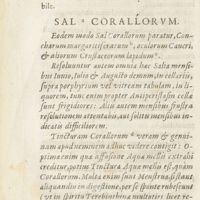 bile.
SAL CORALLORVM.
Eodem modo Sal Corallorum paratur, Con-
charum margaritiferarum, oculorum Cancri,
& aliorum Crustaceorum lapidum.
Resoluuntur autem omnia hæc Salia mensi-
bus Iunio, Iulio & Augusto demum, in cellariis,
supra porphyrium vel vitream tabulam, in li-
quorem, tunc enim propter Antiperistasin cella
sunt frigidiores: Aliis autem mensibus frustra
resolutionem attentabis, aut solitis mensibus in-
dicatis difficiliorem.
Tincturam Corallorum veram & genui-
nam apud neminem adhuc videre contigit: O-
ptima enim quæ affusione Aqua mellis extrahi
creditur, potius Tinctura Aqua mellis est, quàm
Corallorum. Multa enim sunt Menstrua,
aliquandiu in digestione, per se sponte rubescunt
( vt in spiritu Terebinthina